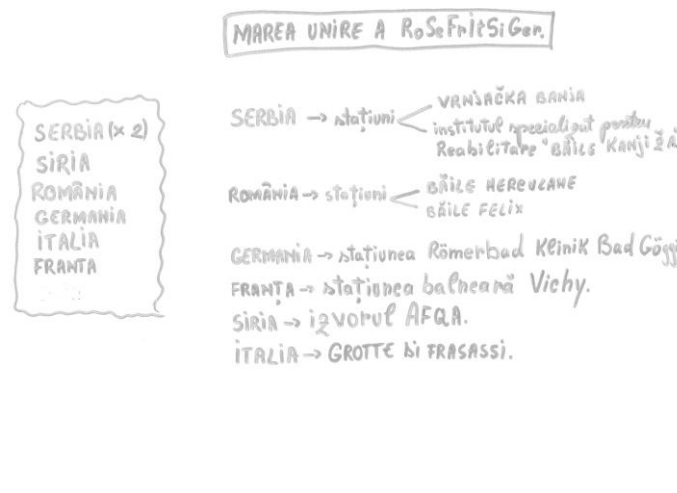 MAREA UNIRE A RoSeFrItSiGer.
SERBiA (x 2)
SiRiA
ROMÂNiA
GERMANiA
iTALiA
FRANTA
SERBiA → stațiuni
VRNJAČKA BANJA
institutul specializat pentru
Reabilitare "BĂiLE KANJiŽA
ROMÂNiA → stațiuni
BĂiLE HERCULANE
BĂiLE FELiX
GERMANiA → stațiunea Römerbad Klinik Bad Göggi
FRANȚA → stațiunea balneară Vichy.
SiRiA → izvorul AFQA.
iTALiA → GROTTE Di FRASASSi.